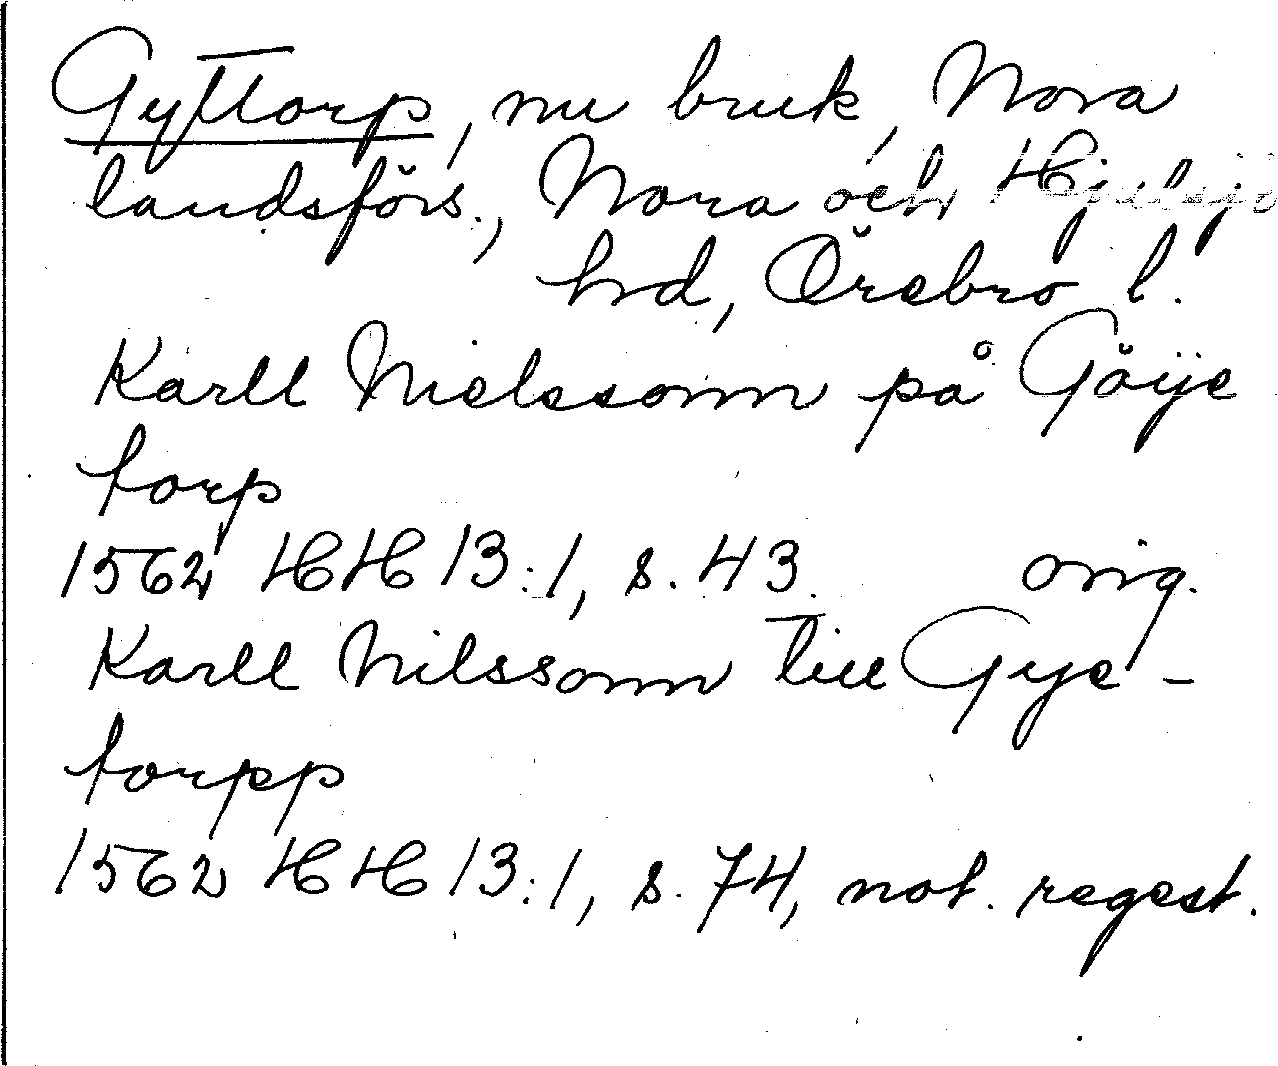 Gyttorp, nu bruk, Nora
landsförs., Nora och Hjulsjö
hd, Örebro l.
Karll Nielssonn på Göije
torp
1562 HH 13:1, s. 43. orig.
Karll Nilssonn till Gye-
torpp
1562 HH 13:1, s. 74, not. regest.